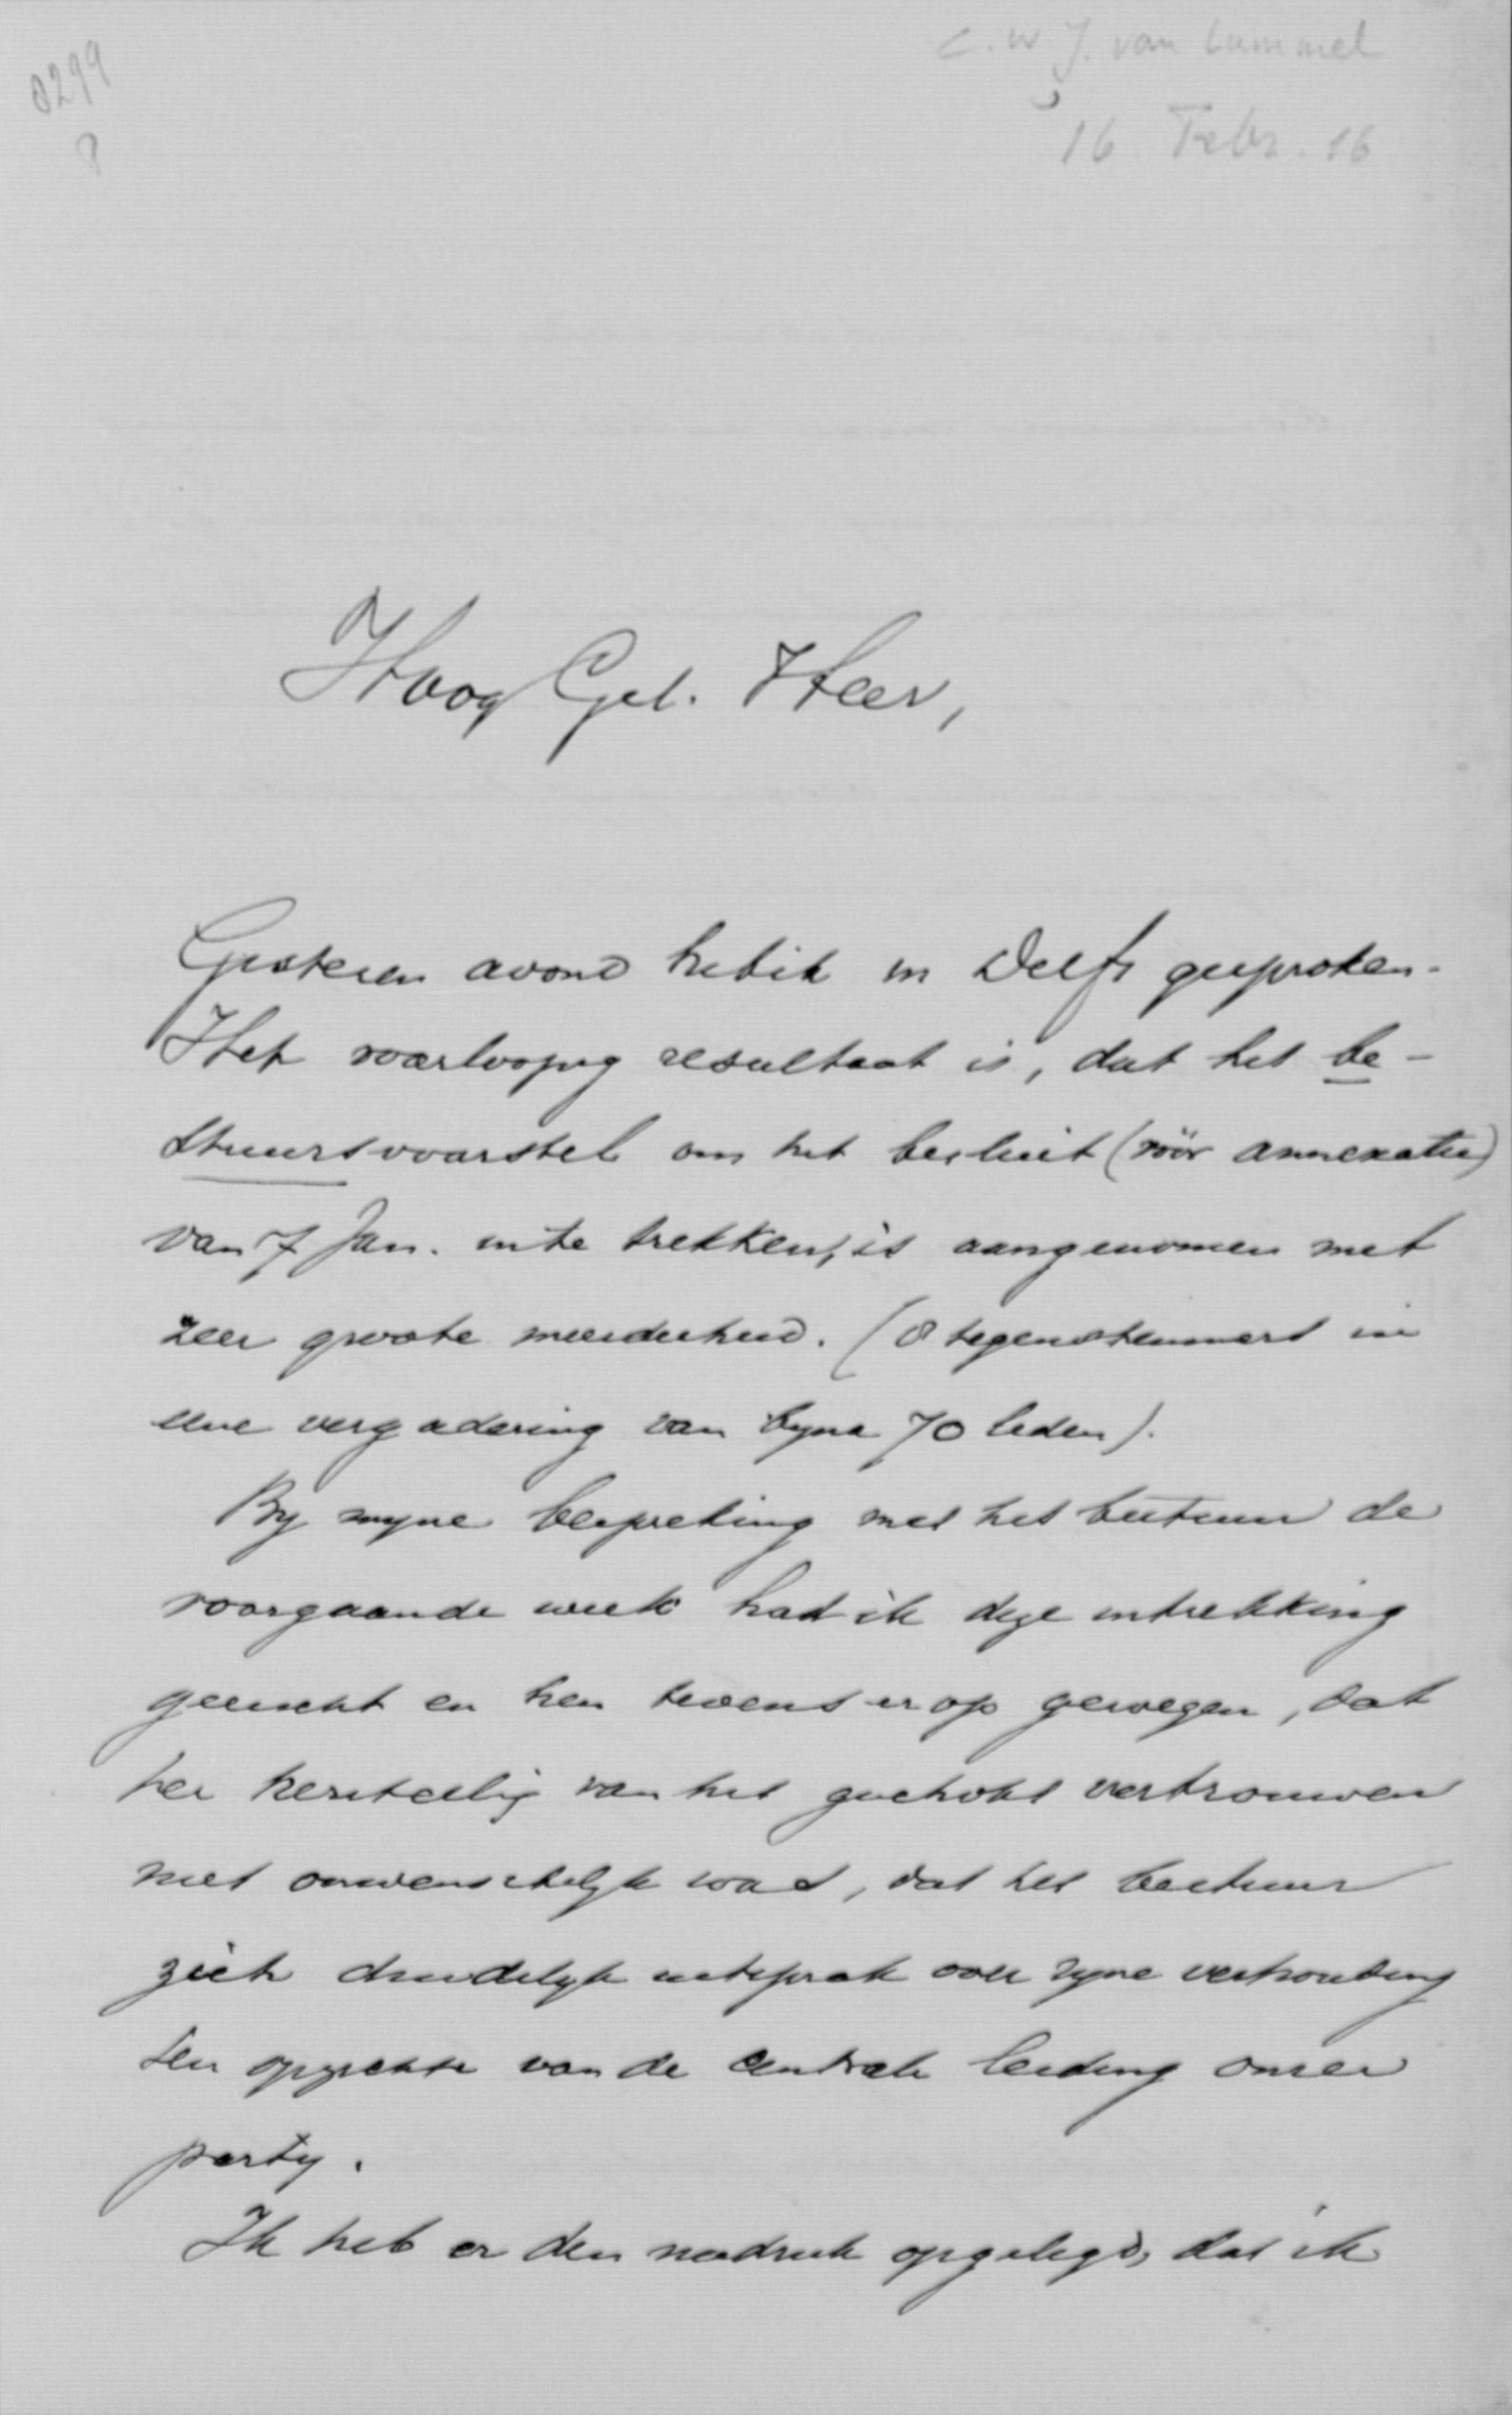 0299
8
C. W. J. van Lummel
16 Febr. 16
Hoog Gel. Heer,
Gisteren avond heb ik in Delft gesproken.
Het voorloopig resultaat is, dat het be-
stuursvoorstel om het besluit (vóór annexatie)
van 7 Jan. in te trekken, is aangenomen met
zeer groote meerderheid. (8 tegenstemmers in
eene vergadering van byna 70 leden).
By myne bespreking met het bestuur de
voorgaande week had ik deze intrekking
geeischt en hen tevens er op gewezen, dat
ter herstelling van het geschokt vertrouwen
niet onwenschelyk was, dat het bestuur
zich duidelyk uitsprak over zyne verhouding
ten opzichte van de centrale leiding onzer
party.
Ik heb er den nadruk opgelegd, dat ik